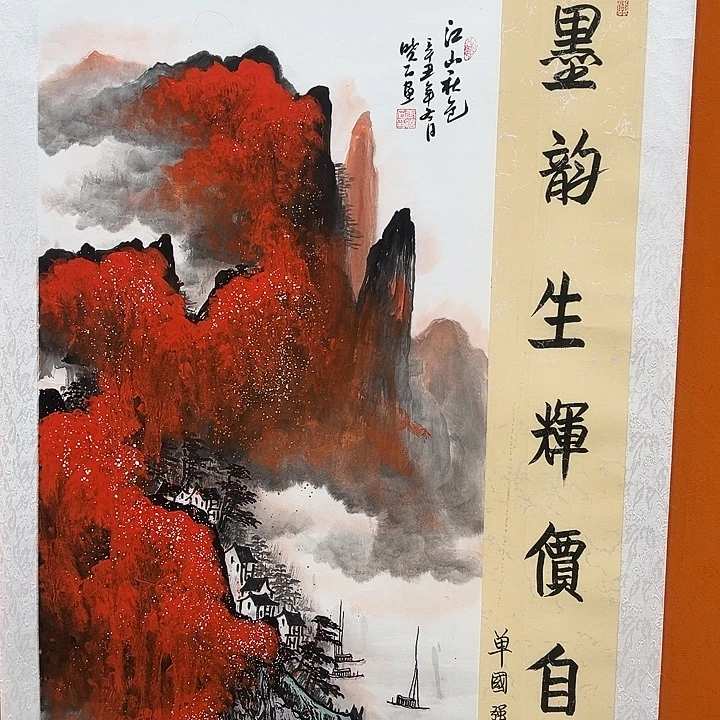 江山秋色
辛丑年六月
晓石画
墨韵生輝價自
单國强